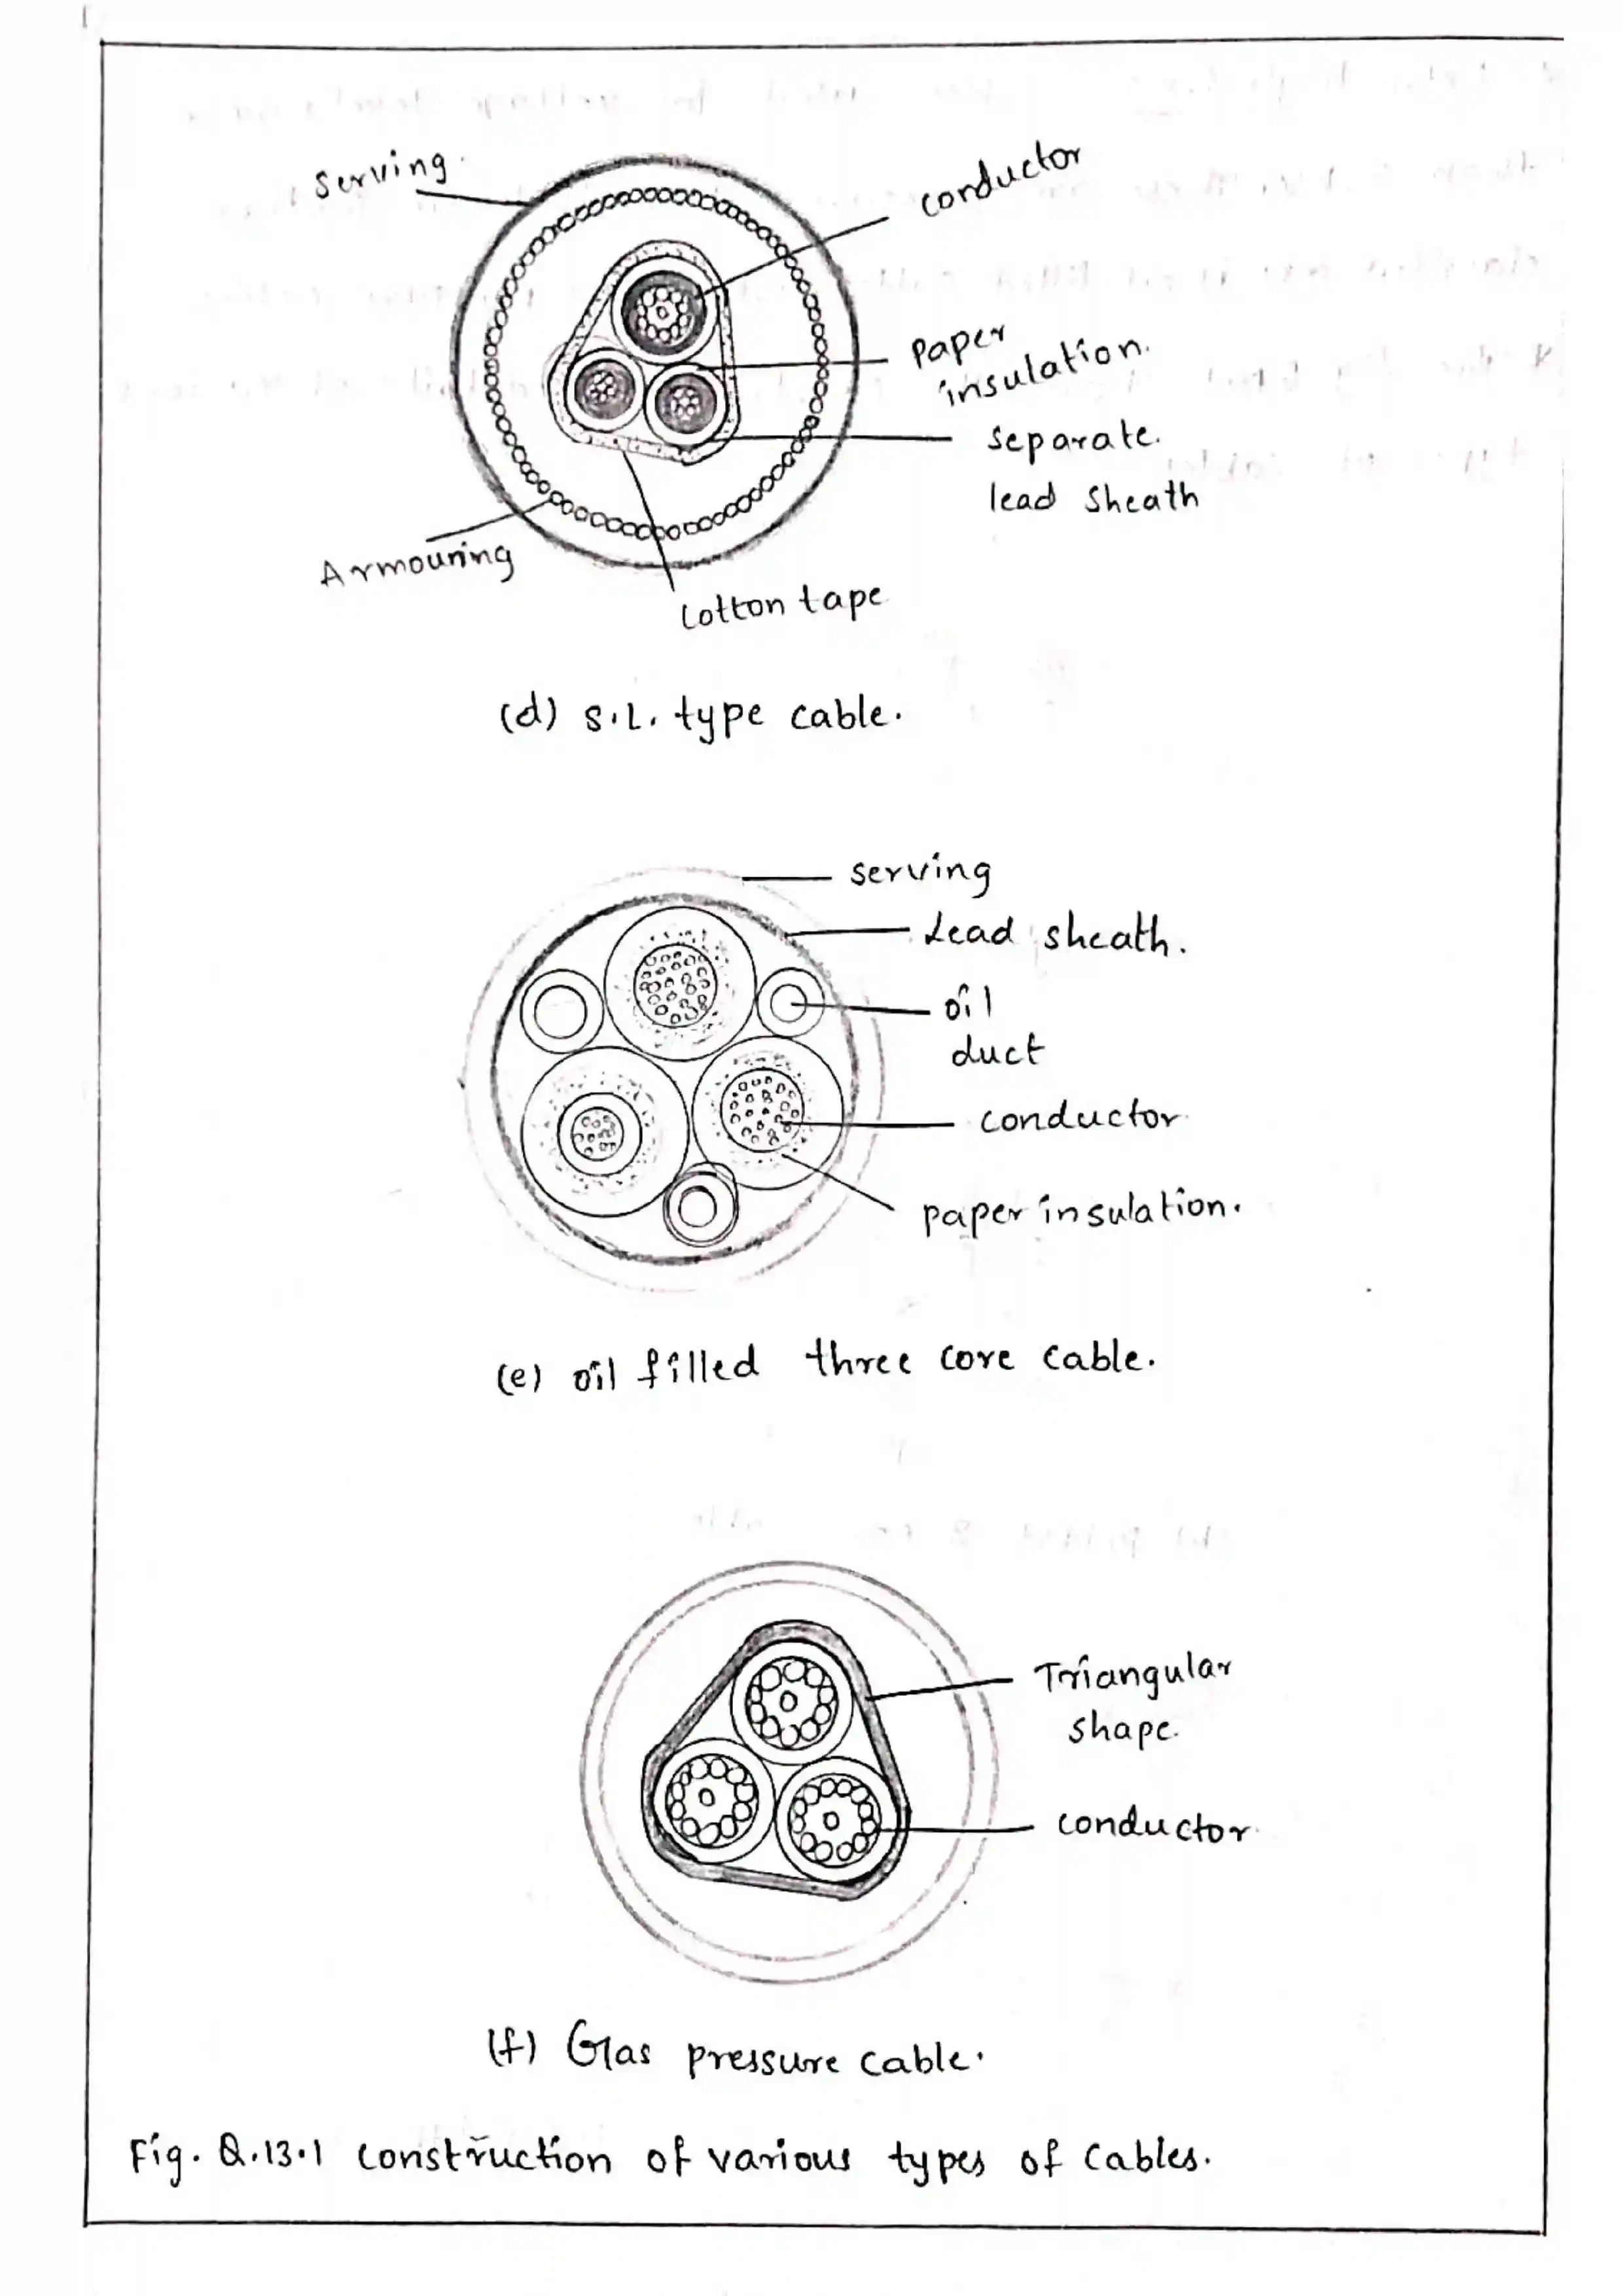 Serving.
conductor
paper
insulation.
separate.
lead sheath
Armouring
Cotton tape
(d) S.L. type cable.
serving
Lead sheath.
oil
duct
conductor
paper insulation.
(e) oil filled three core cable.
Triangular
shape.
conductor
(f) Gas pressure cable.
Fig. Q.13.1 construction of various types of cables.